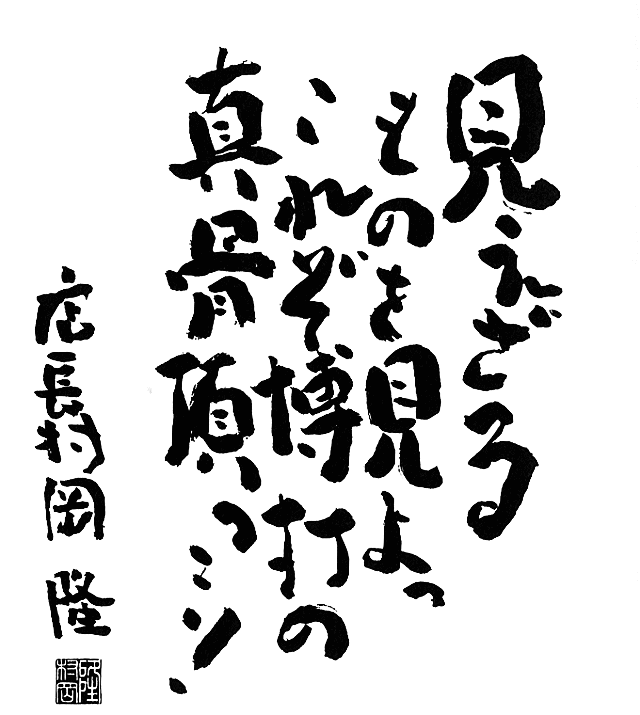 見えざる
ものを見よっ
これぞ博打の
真骨頂っ
店長村岡 隆